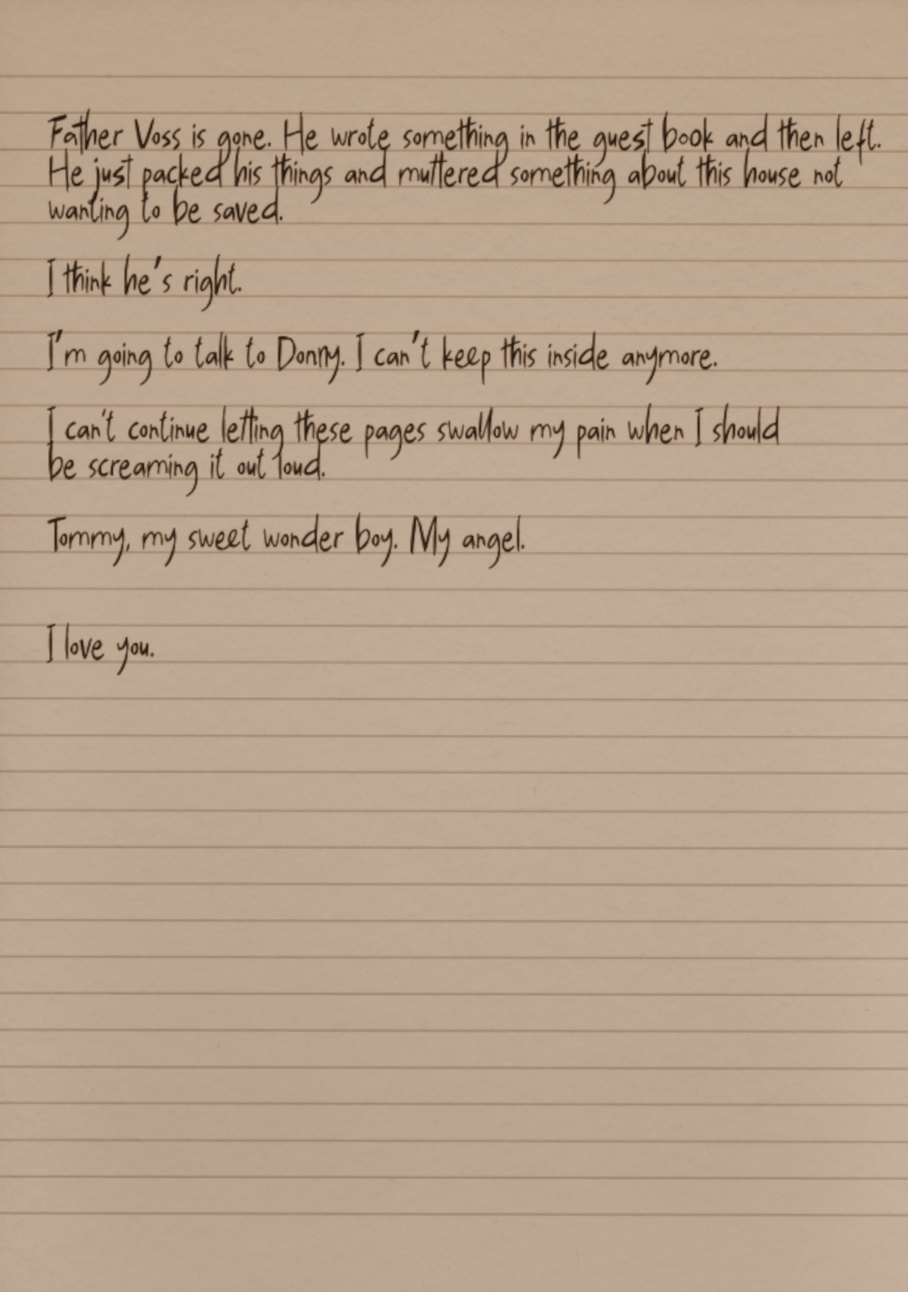 Father Voss is gone. He wrote something in the guest book and then left.
He just packed his things and muttered something about this house not
wanting to be saved.
I think he's right.
I'm going to talk to Donny. I can't keep this inside anymore.
I can't continue letting these pages swallow my pain when I should
be screaming it out loud.
Tommy, my sweet wonder boy. My angel.
I love you.